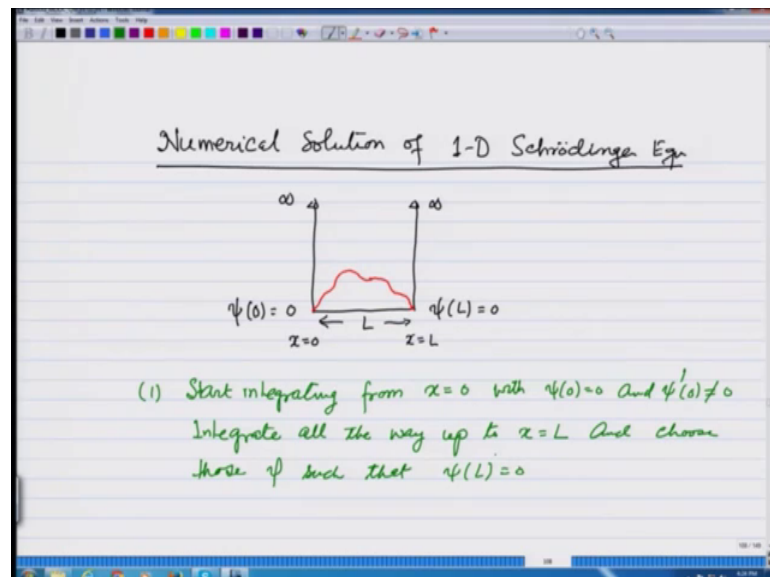 File Edit View Insert Actions Tools Help
Numerical Solution of 1-D Schrödinger Eqn
∞ ∞
ψ(0) = 0 ← L → ψ(L) = 0
x=0 x=L
(1) Start integrating from x=0 with ψ(0)=0 and ψ'(0)≠0
Integrate all the way up to x=L and choose
those ψ such that ψ(L)=0